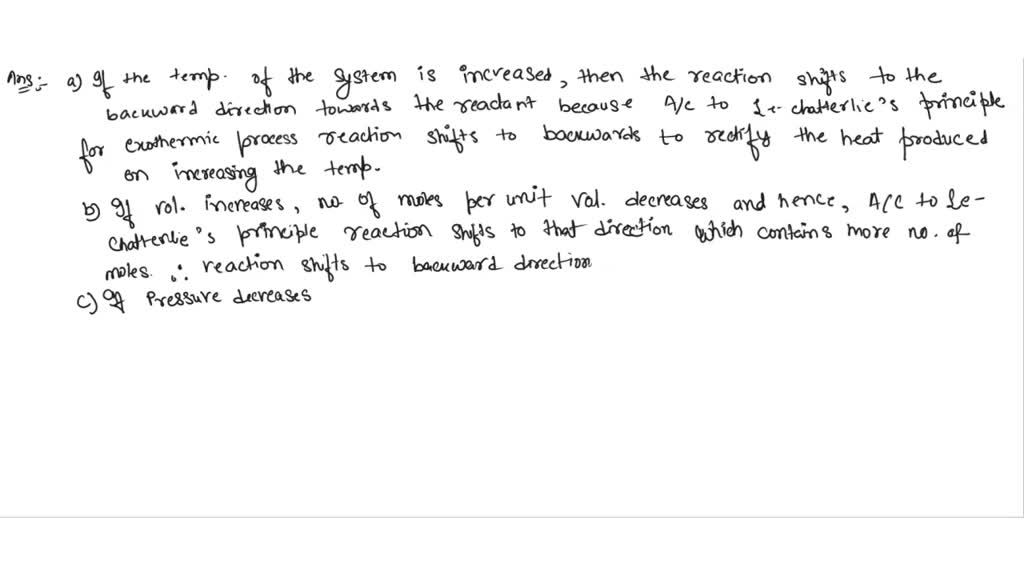 Ans:- a) If the temp. of the system is increased, then the reaction shifts to the
backward direction towards the reactant because A/c to Le-chatterlie's principle
for exothermic process reaction shifts to backwards to rectify the heat produced
on increasing the temp.
b) If vol. increases, no of moles per unit vol. decreases and hence, A/C to Le-
Chatterlie's principle reaction shifts to that direction which contains more no. of
moles. ∴ reaction shifts to backward direction
c) If Pressure decreases